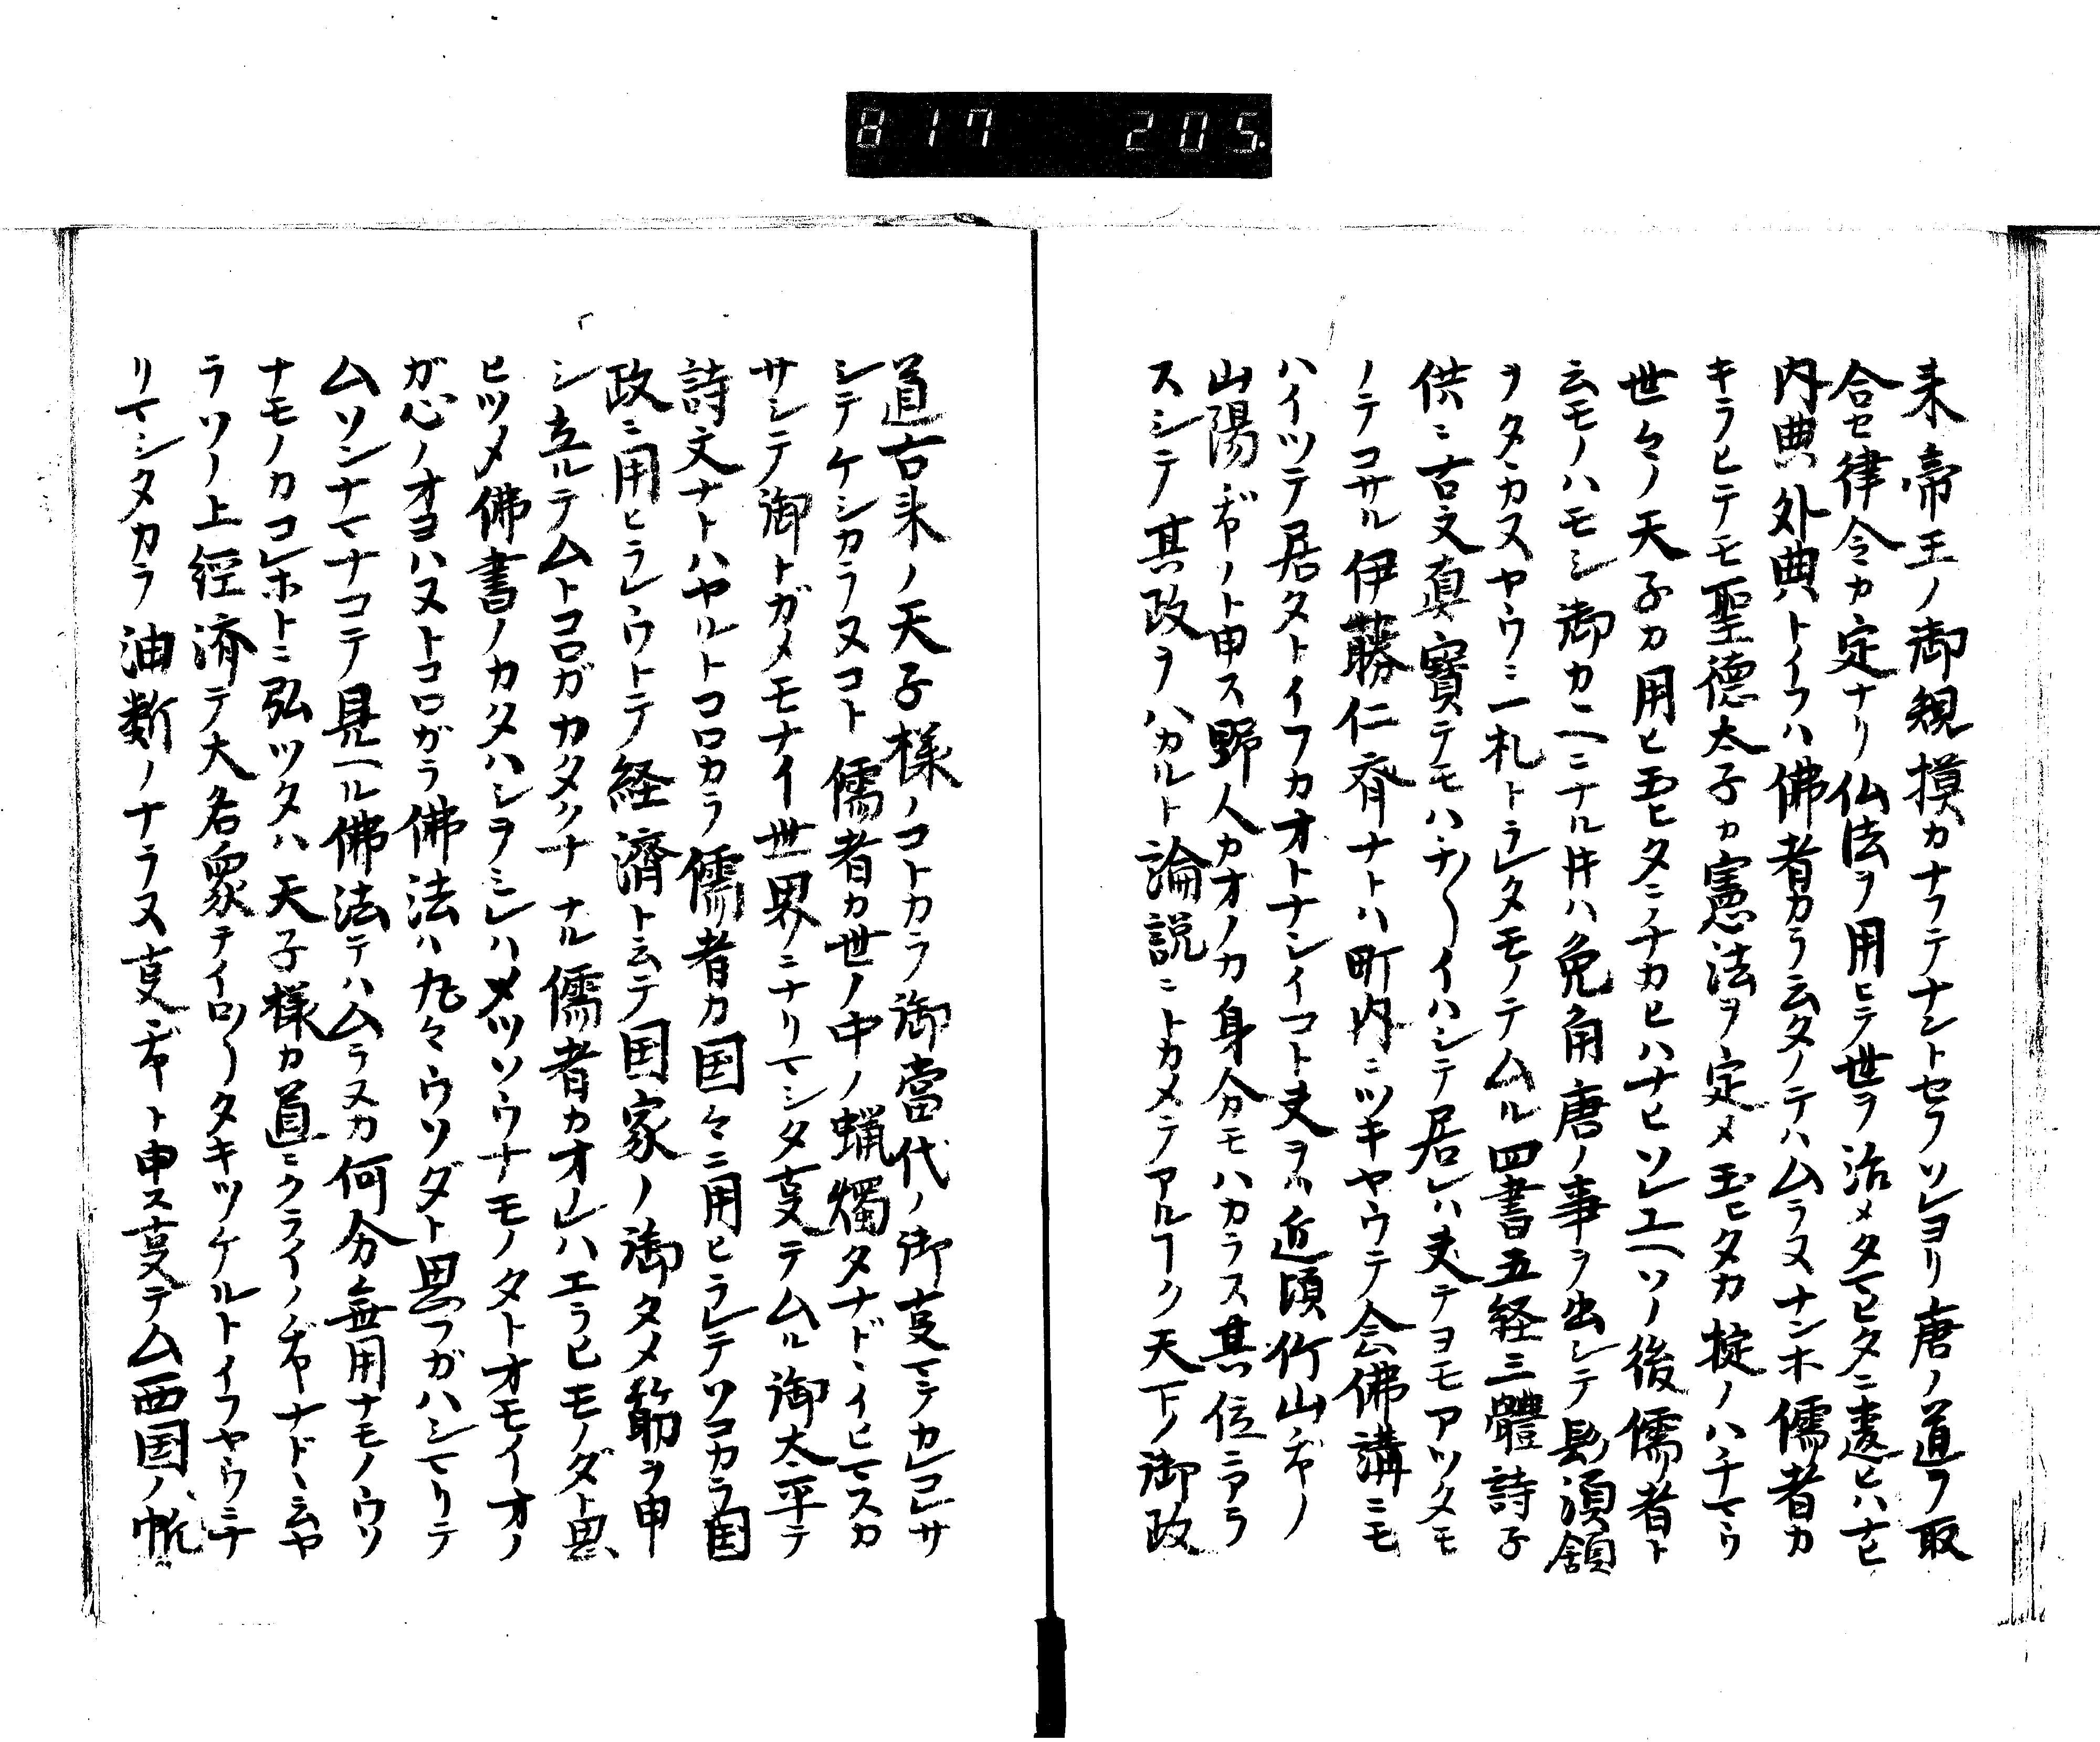 817 205.
来帝王ノ御規摸カナフテナントセフソレヨリ唐ノ道ヲ取
合セ律令カ定ナリ仏法ヲ用ヒテ世ヲ治メタマヒタニ違ヒハナヒ
内典外典トイフハ佛者カラ云タノテハムラスナンホ儒者カ
キラヒテモ聖德太子カ憲法ヲ定メ玉ヒタカ掟ノハチマリ
世々ノ天子カ用ヒ玉ヒタニチカヒハナヒソレユヘソノ後儒者ト
云モノハモシ御カニヘニナル牛ハ免角唐ノ事ヲ出シテ烏須領
ヲタカヌヤウニ一札トラレタモノテムル四書五経三體詩子
供ニ古文真寳テモハナ〱イハシテ居レハ夫テヨモアツタモ
ノテコサル伊藤仁齊ナトハ町内ニツキヤウテ会佛講ニモ
ハイツテ居タトイフカオトナシイコト夫ヲハ近頃竹山ヂヤノ
山陽ヂヤノト申ス野人カオノカ身分モハカラス其位ニアラ
スシテ其政ヲハカルト論説ニトカメテアルヿク天下ノ御政
道古来ノ天子様ノコトカラ御當代ノ御支マテカレコレサ
シテケシカラヌコト儒者カ世ノ中ノ蝋燭タナドヽイヒマスカ
サシテ御トガメモナイ世界ニナリマシタ支テムル御太平テ
詩文ナトハヤルトコロカラ儒者カ国々ニ用ヒラレテソコカラ国
政ニ用ヒラレウトテ経濟ト云テ国家ノ御タメ筋ヲ申
シ立ルテムトコロガカタクナナル儒者カオレハエラヒモノダト思
ヒツメ佛書ノカタハシヲミレハメツソウナモノタトオモイオノ
ガ心ノオヨハヌトコロガラ佛法ハ九々ウソダト思フガハシマリテ
ムソンナマナコテ見ヘル佛法テハムラヌカ何分無用ナモノウソ
ナモノカコレホトニ弘ツタハ天子様カ道ニクライノヂヤナドヽ云ヤ
ラソノ上經済テ大名衆テイロ〱タキツケルトイフヤウニナ
リマシタカラ油断ノナラヌ支ヂヤト申ス支テム西国ノ帆